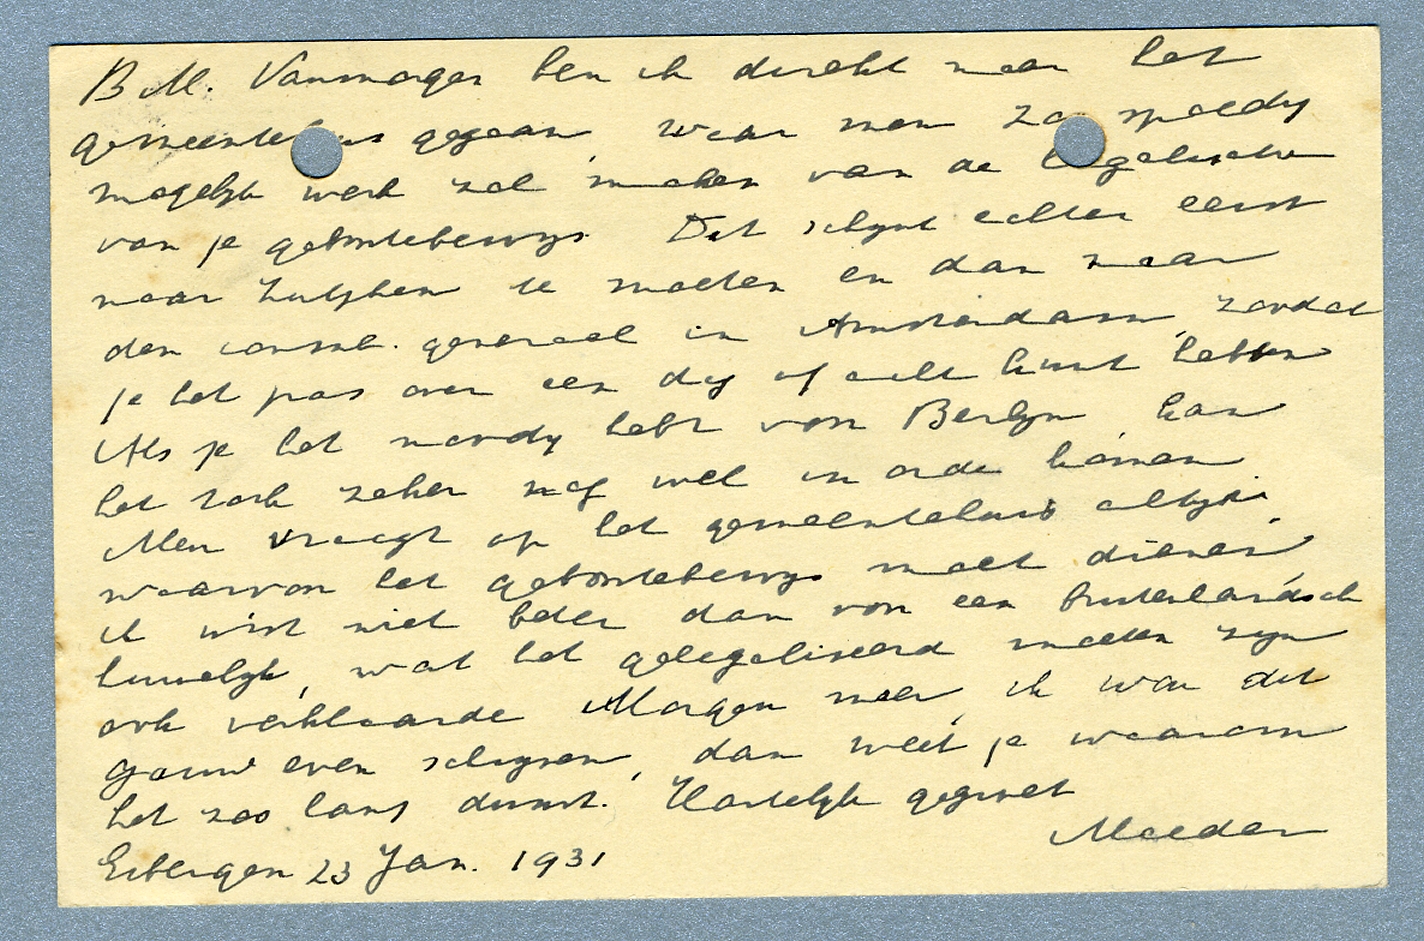 B M. Vanmorgen ben ik direkt naar het
gemeentehuis gegaan, waar men zoo spoedig
mogelijk werk zal maken van de legalisatie
van je geboortebewijs. Dit schijnt echter eerst
naar Zutphen te moeten en dan naar
den consul. generaal in Amsterdam, zoodat
je het pas over een dag of acht kunt hebben
Als je het noodig hebt voor Berlijn, kan
het toch zeker nog wel in orde komen
Men vraagt op het gemeentehuis altijd:
waarvoor het geboortebewijs moet dienen,
ik wist niet beter dan voor een buitenlandsch
huwelijk, wat het gelegaliseerd moeten zijn
ook verklaarde Morgen meer, ik wou dit
gauw even schrijven, dan weet je waarom
het zoo lang duurt. Hartelijk gegroet
Moeder
Eibergen 23 Jan. 1931